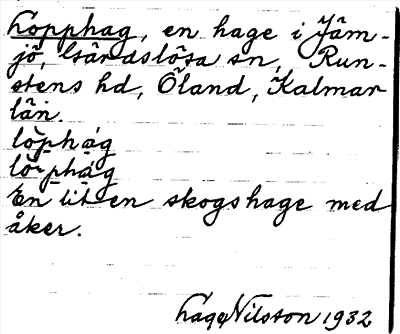 Lopphag, en hage i Jäm-
jö, Gärdslösa sn, Run-
stens hd, Öland, Kalmar
län.
lòphág
lòphág
En liten skogshage med
åker.
Lage Nilsson 1932